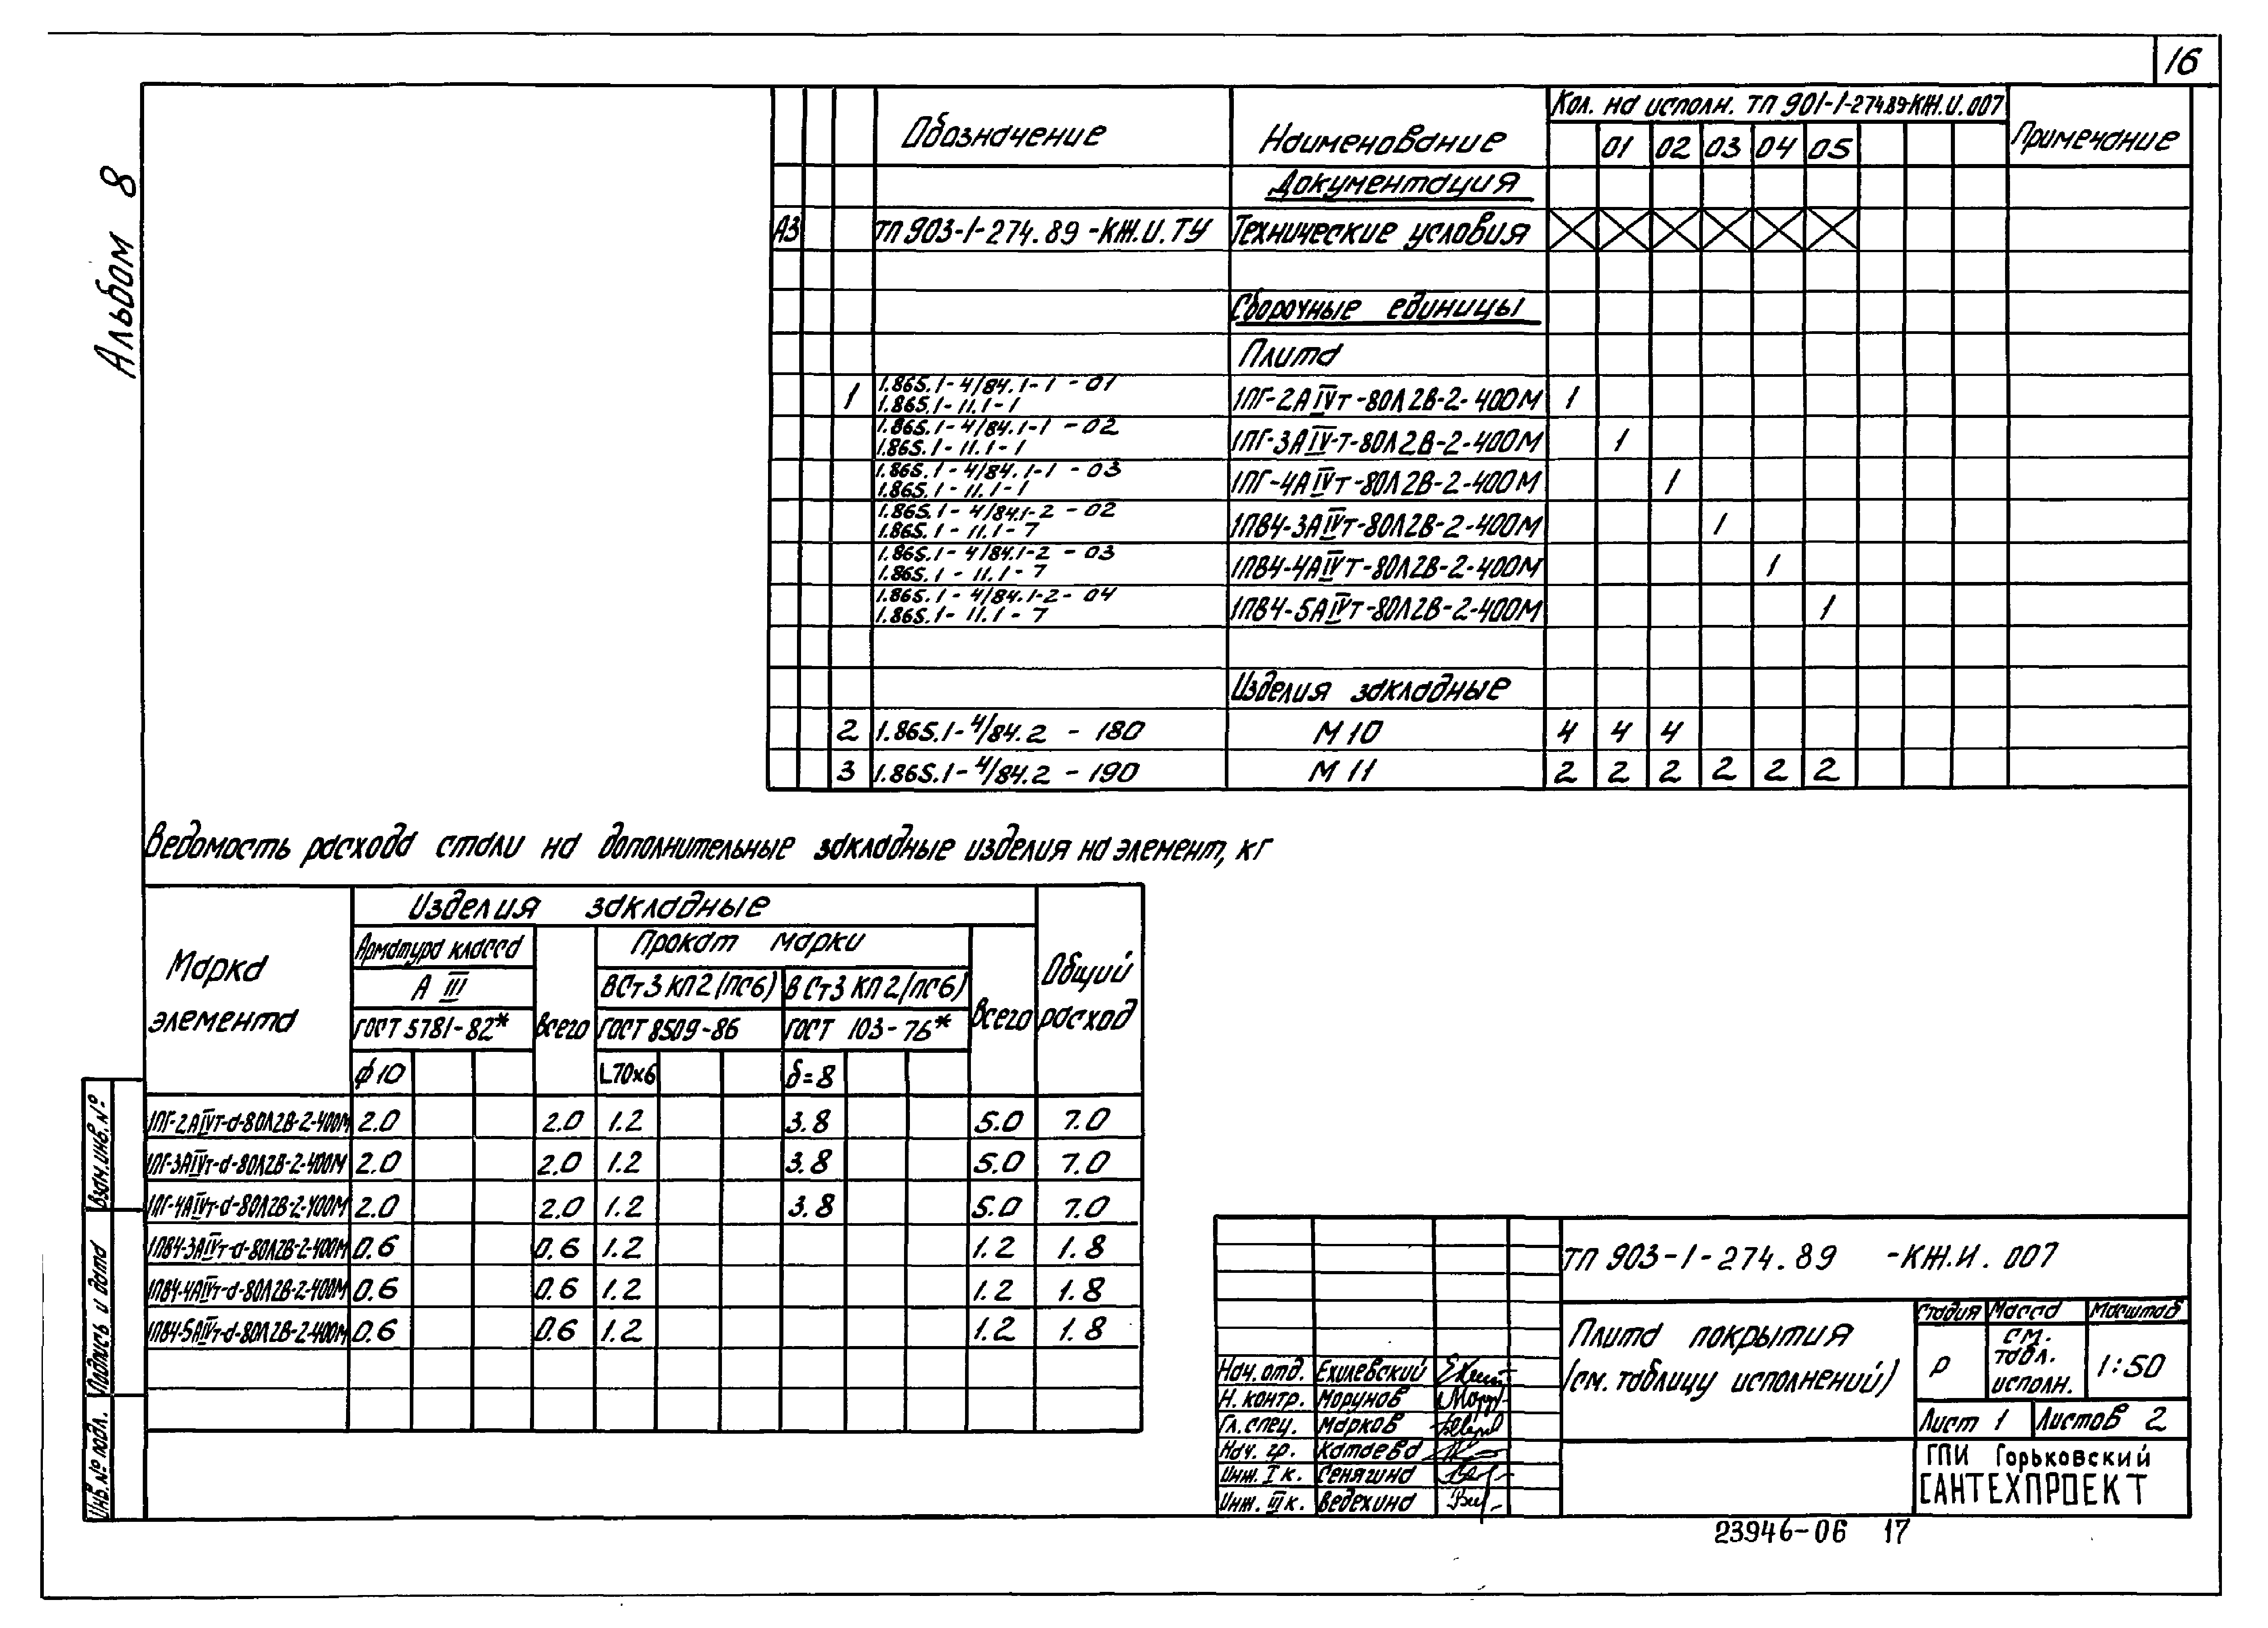 16
Альбом 8
Обозначение Наименование Кол. на исполн. ТП 901-1-274.89-КЖ.И.007 Примечание
01 02 03 04 05
Документация
А3 ТП 903-1-274.89-КЖ.И.ТУ Технические условия
Сборочные единицы
Плита
1 1.865.1-4/84.1-1-01 1ПГ-2АIVт-80Л2В-2-400М 1
1.865.1-11.1-1
1.865.1-4/84.1-1-02 1ПГ-3АIV-т-80Л2В-2-400М 1
1.865.1-11.1-1
1.865.1-4/84.1-1-03 1ПГ-4АIVт-80Л2В-2-400М 1
1.865.1-11.1-1
1.865.1-4/84.1-2-02 1ПВ4-3АIVт-80Л2В-2-400М 1
1.865.1-11.1-7
1.865.1-4/84.1-2-03 1ПВ4-4АIVт-80Л2В-2-400М 1
1.865.1-11.1-7
1.865.1-4/84.1-2-04 1ПВ4-5АIVт-80Л2В-2-400М 1
1.865.1-11.1-7
Изделия закладные
2 1.865.1-4/84.2-180 М10 4 4 4
3 1.865.1-4/84.2-190 М11 2 2 2 2 2 2
Ведомость расхода стали на дополнительные закладные изделия на элемент, кг
Марка элемента Изделия закладные Общий расход
Арматура класса Всего Прокат марки Всего
А III ВСт3КП2(ПС6) ВСт3КП2(ПС6)
ГОСТ 5781-82* ГОСТ 8509-86 ГОСТ 103-76*
ф10 L70х6 δ=8
1ПГ-2АIVт-а-80Л2В-2-400М 2.0 2.0 1.2 3.8 5.0 7.0
1ПГ-3АIVт-а-80Л2В-2-400М 2.0 2.0 1.2 3.8 5.0 7.0
1ПГ-4АIVт-а-80Л2В-2-400М 2.0 2.0 1.2 3.8 5.0 7.0
1ПВ4-3АIVт-а-80Л2В-2-400М 0.6 0.6 1.2 1.2 1.8
1ПВ4-4АIVт-а-80Л2В-2-400М 0.6 0.6 1.2 1.2 1.8
1ПВ4-5АIVт-а-80Л2В-2-400М 0.6 0.6 1.2 1.2 1.8
Взам.инв.№
Подпись и дата
Инв.№ подл.
ТП 903-1-274.89 -КЖ.И.007
Плита покрытия
(см. таблицу исполнений)
Стадия Масса Масштаб
Р см. табл. исполн. 1:50
Лист 1 Листов 2
ГПИ Горьковский
САНТЕХПРОЕКТ
Нач. отд. Ехилевский
Н. контр. Морунов
Гл. спец. Марков
Нач. гр. Катаева
Инж. I к. Сенягина
Инж. III к. Ведехина
23946-06 17